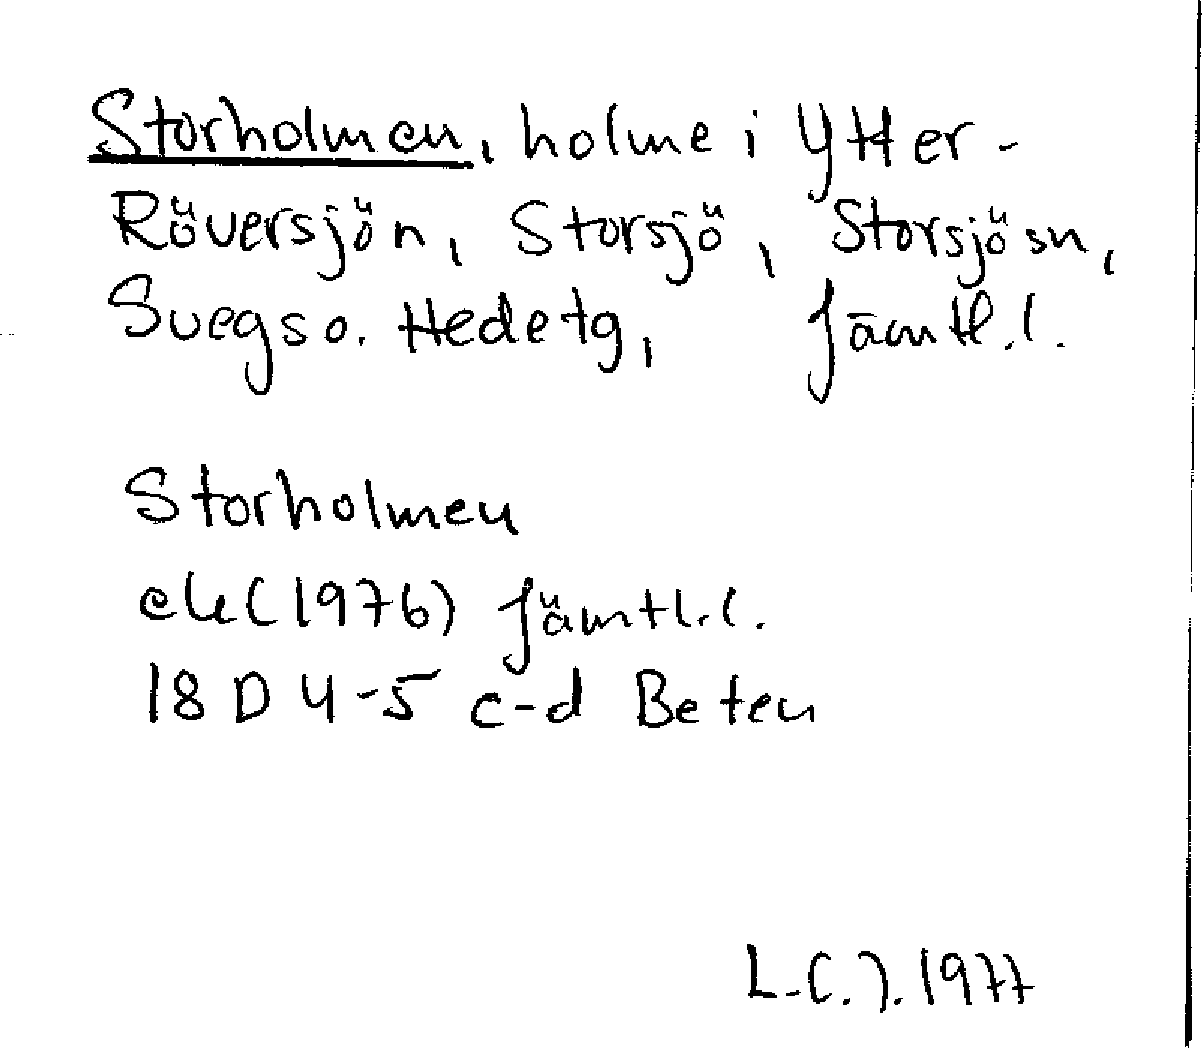 Storholmen, holme i Ytter-
Röversjön, Storsjö, Storsjösn,
Svegs o. Hede tg, Jämtl.l.
Storholmen
ek (1976) Jämtl.l.
18 D 4-5 c-d Beten
L-C.J. 1977